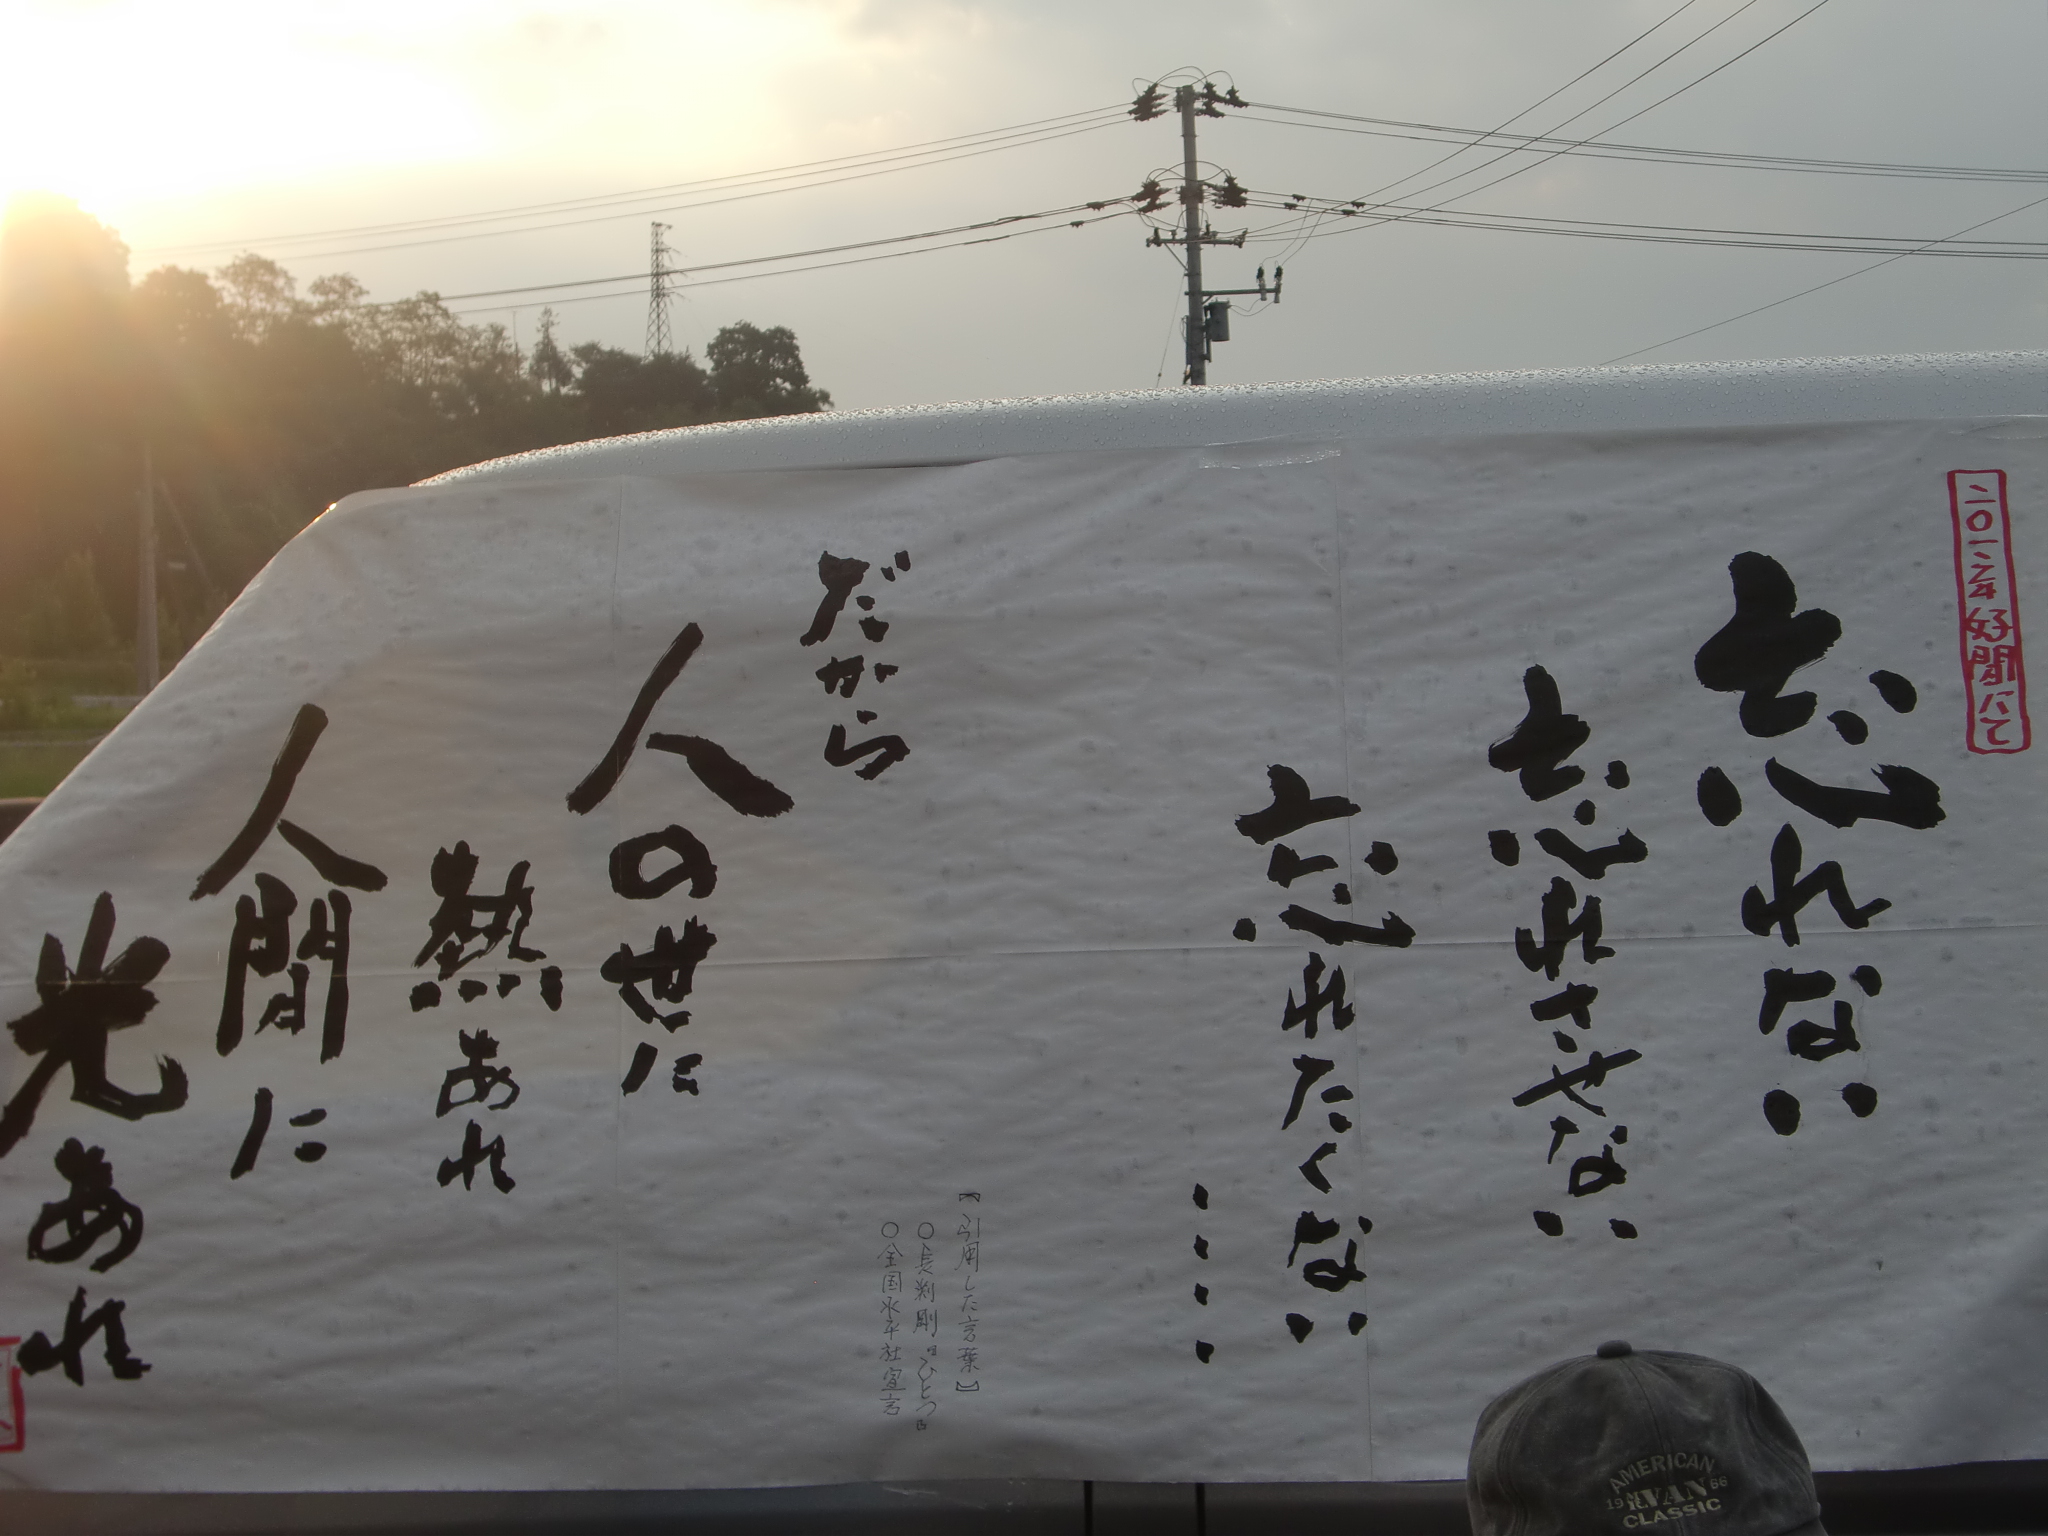 二〇一二年好間にて
忘れない
忘れさせない
忘れたくない
・・・・
【引用した言葉】
○長渕剛『ひとつ』
○全国水平社宣言
だから
人の世に
熱あれ
人間に
光あれ
AMERICAN
1986
CLASSIC